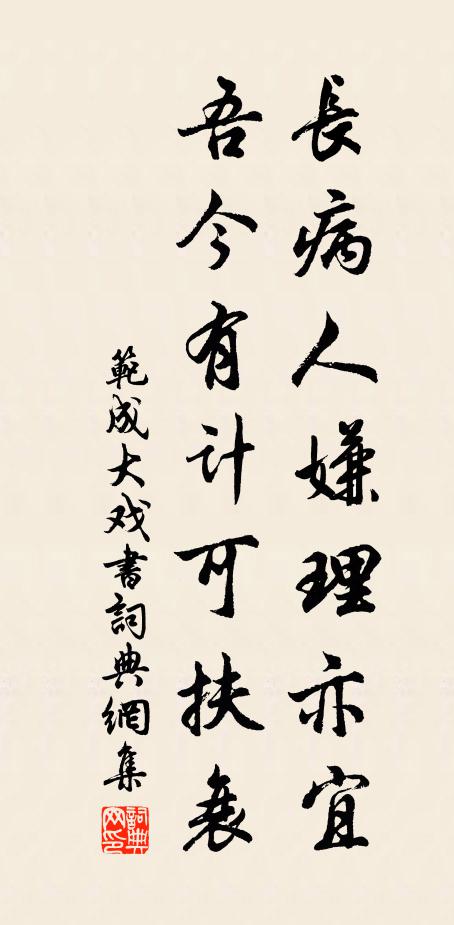 長病人嫌理亦宜
吾今有计可扶衰
範成大戏書詞典網集
詞典网印